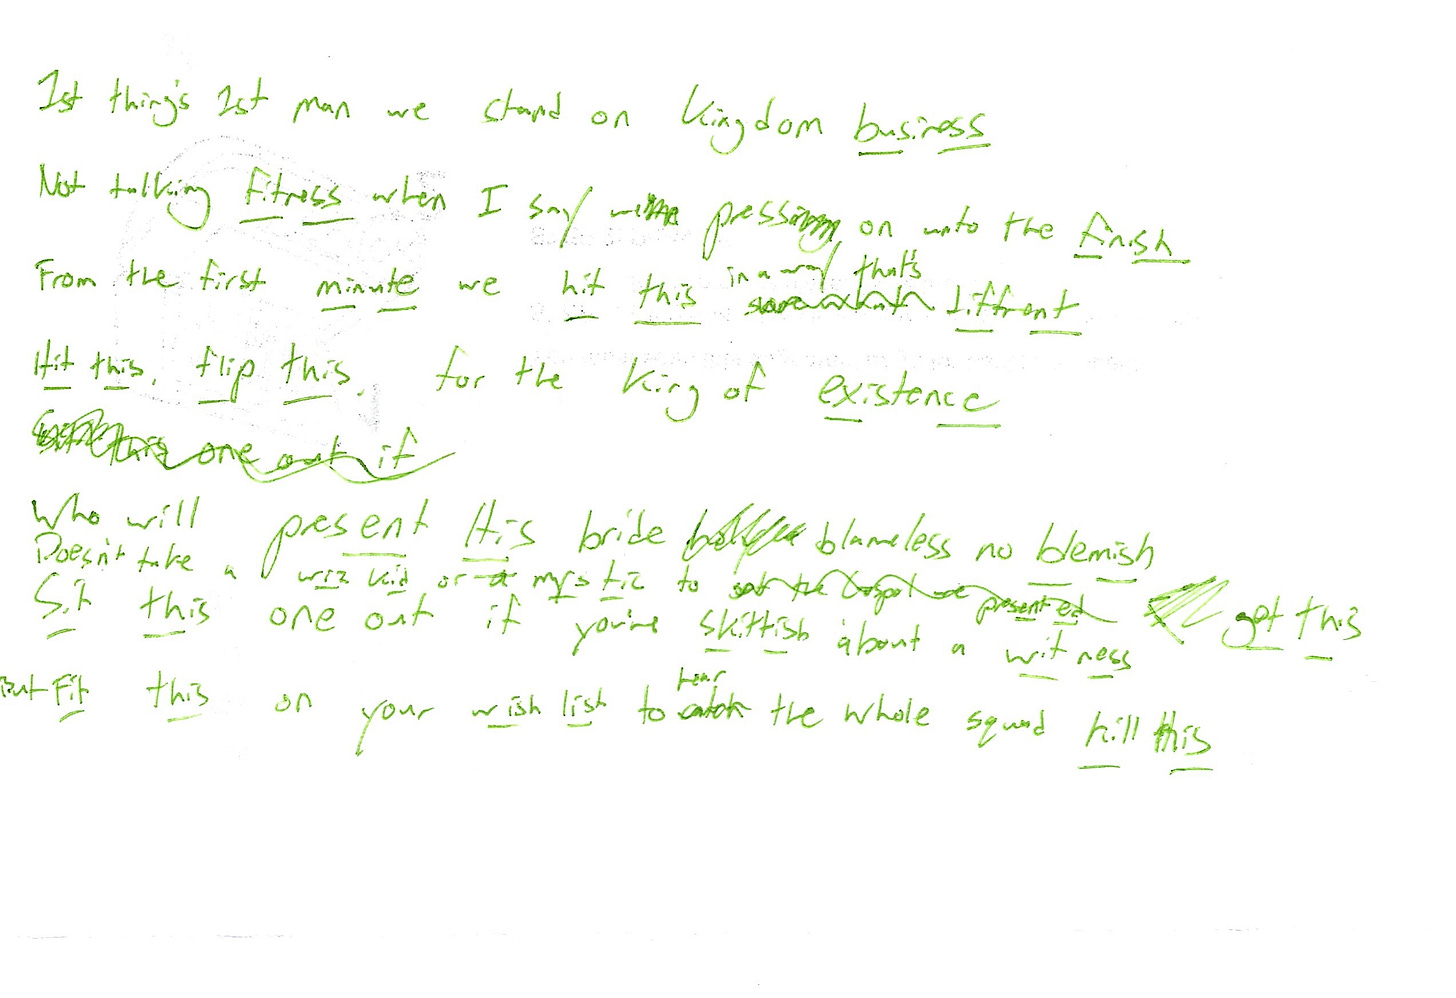 1st thing's 1st man we stand on Kingdom business
Not talking fitness when I say pressing on unto the finish
From the first minute we hit this in a way that's diffrent
Hit this, flip this, for the King of existence
this one out if
Who will present His bride blameless no blemish
Doesn't take a wiz kid or a mystic to get the Gospel we presented get this
Sit this one out if you're skittish about a witness
But Fit this on your wish list to hear catch the whole squad kill this